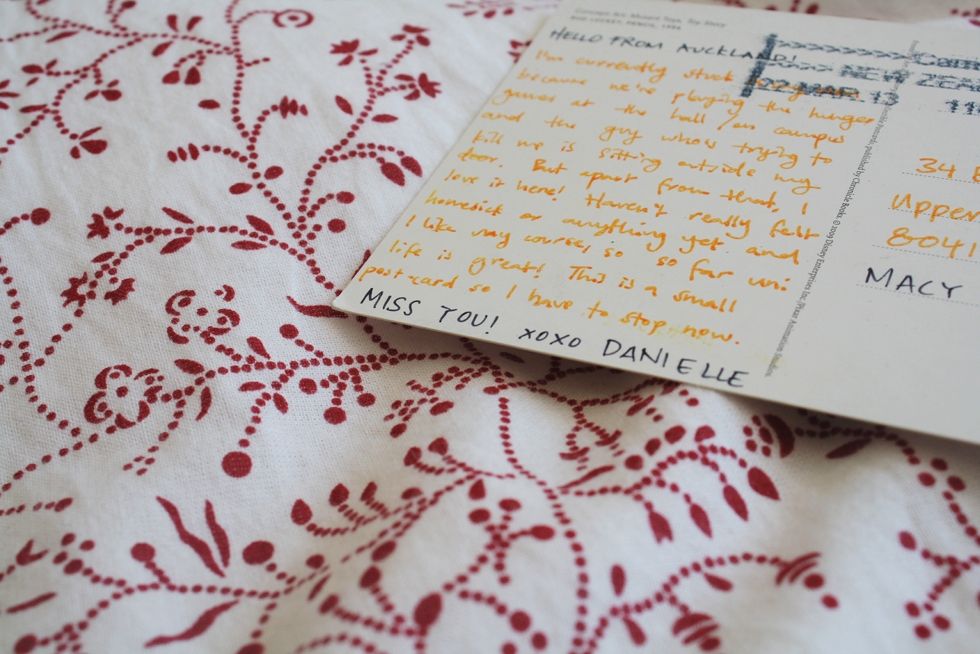 Concept Art, Mutant Toys, Toy Story
BUD LUCKEY, PENCIL, 1994
HELLO FROM AUCKLAND!
I'm currently stuck
because we're playing the hunger
games at the hall / on campus
and the guy who's trying to
kill me is sitting outside my
door. But apart from that, I
love it here! Haven't really felt
homesick or anything yet and
I like my course, so so far uni
life is great! This is a small
post-card so I have to stop now.
MISS YOU! XOXO DANIELLE
NEW ZEA
22 MAR 13
published by Chronicle Books. © 2009 Disney Enterprises Inc./Pixar Animation Studios.
34
Upper
804
MACY